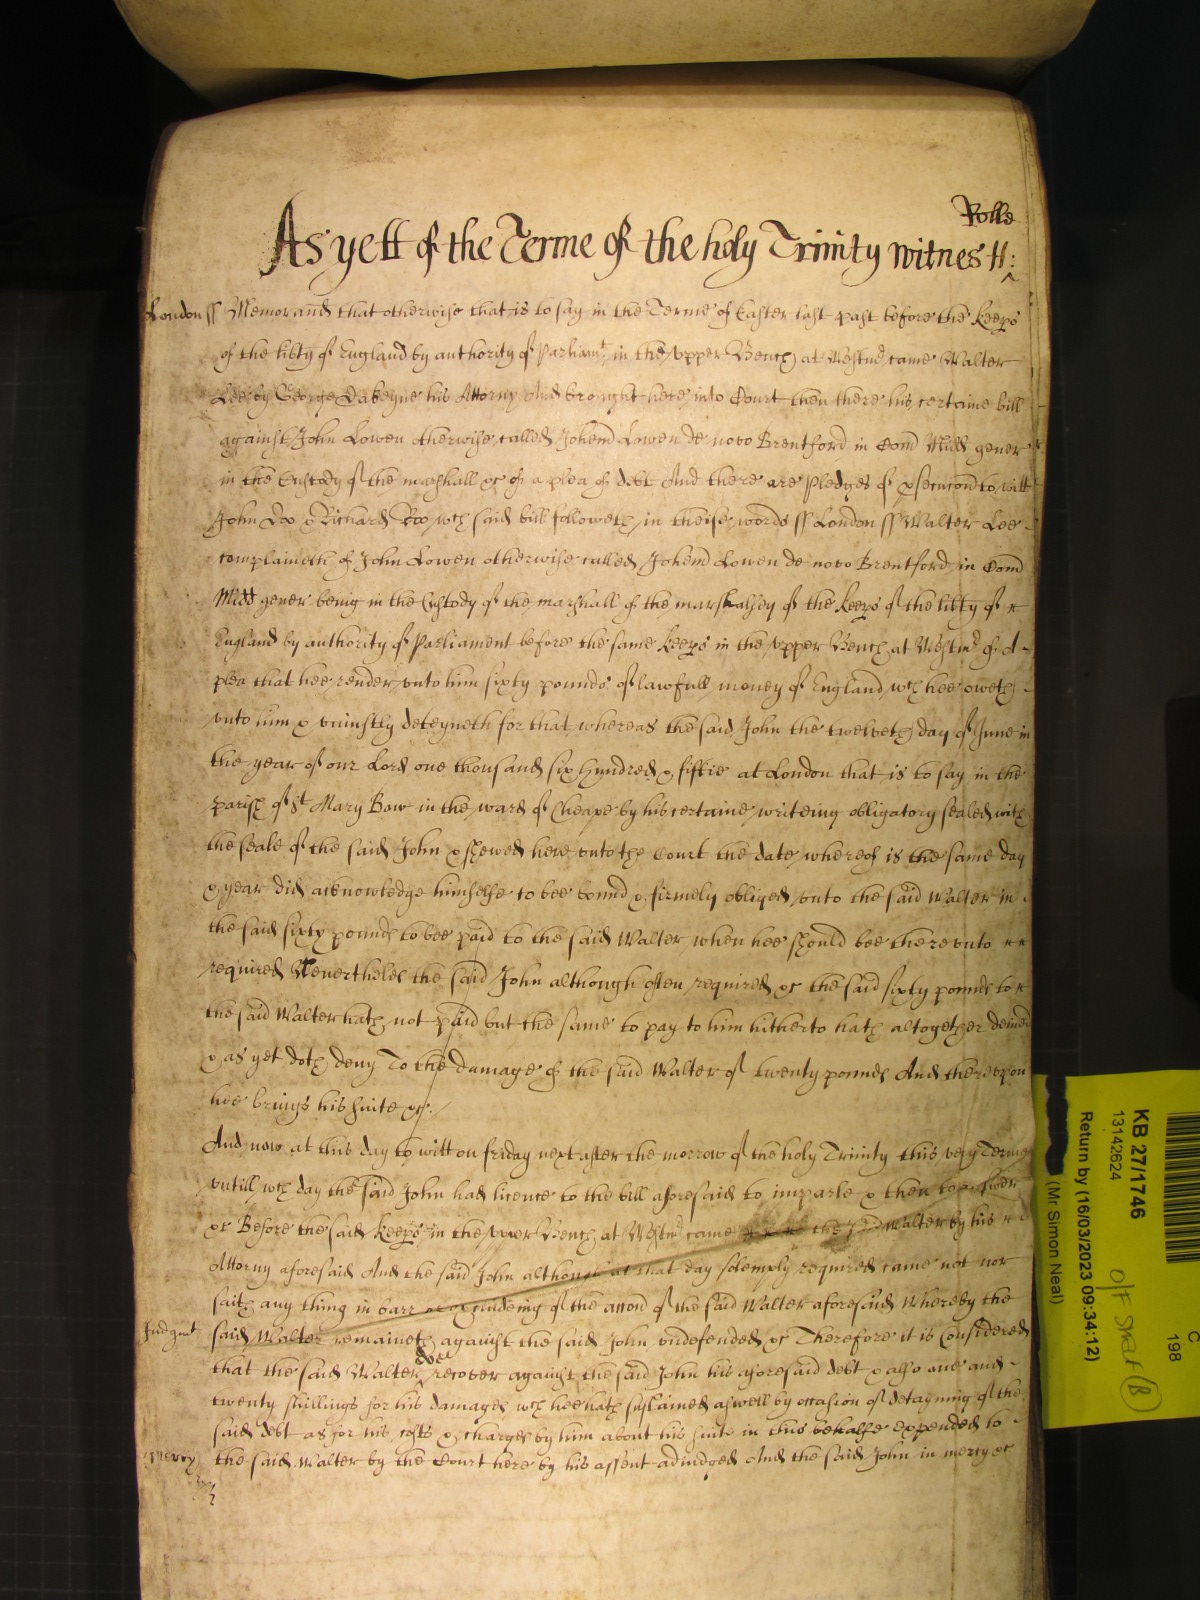 Rolle
As yett of the Terme of the holy Trinity Witnes H:
London ss Memorand that otherwise that is to say in the Terme of Easter last past before the Keeps
of the libty of England by authority of Parliamt in the upper Bench at Westmr came Walter
Lee by George Dakeyne his Attorny And brought here into Court then there his certaine bill
against John Lowen otherwise called Johem Lowen de novo Brentford in Com Midd gener
in the Custody of the marshall &c of a plea of debt And there are Pledges of &secucon to witt
John Doo & Richard Roo wch said bill followeth in theise words ss London ss Walter Lee
complaineth of John Lowen otherwise called Johem Lowen de novo Brentford in Com
Midd gener being in the Custody of the marshall of the marshalsey of the Keeps of the libty of
England by authority of Parliament before the same Keeps in the upper Bench at Westmr of A
plea that hee render unto him sixty pounds of lawfull money of England wch hee oweth
unto him & uniustly deteyneth for that whereas the said John the twelveth day of June in
the year of our Lord one thousand six hundred & fiftie at London that is to say in the
parish of St Mary Bow in the ward of Cheape by his certaine writeing obligatory sealed with
the seale of the said John & shewed here unto the Court the date whereof is the same day
& year did acknowledge himselfe to bee bound & firmely obliged unto the said Walter in
the said sixty pounds to bee paid to the said Walter when hee should bee thereunto
required Neverthelesse the said John although often required &c the said sixty pounds to
the said Walter hath not paid but the same to pay to him hitherto hath altogether denied
& as yet doth deny To the damage of the said Walter of twenty pounds And thereupon
hee brings his suite &c.
And now at this day to witt on friday next after the morrow of the holy Trinity this very Terme
untill wch day the said John had licence to the bill aforesaid to imparle & then to answer
&c Before the said Keeps in the upper Bench at Westmr came the said Walter by his
Attorny aforesaid And the said John although at that day solemply required came not nor
saith any thing in barr or &cludeing of the accon of the said Walter aforesaid Whereby the
Judgmt said Walter remaineth against the said John undefended &c Therefore it is Considered
that the said Walter doe recover against the said John his aforesaid debt & also one and
twenty shillings for his damages wch hee hath susteined aswell by occasion of detayning of the
said debt as for his costs & charges by him about his suite in this behalfe expended to
mercy the said Walter by the Court here by his assent adiudged And the said John in mercy &c
KB 27/1746
13142624
Return by (16/03/2023 09:34:12)
(Mr Simon Neal)
C
198